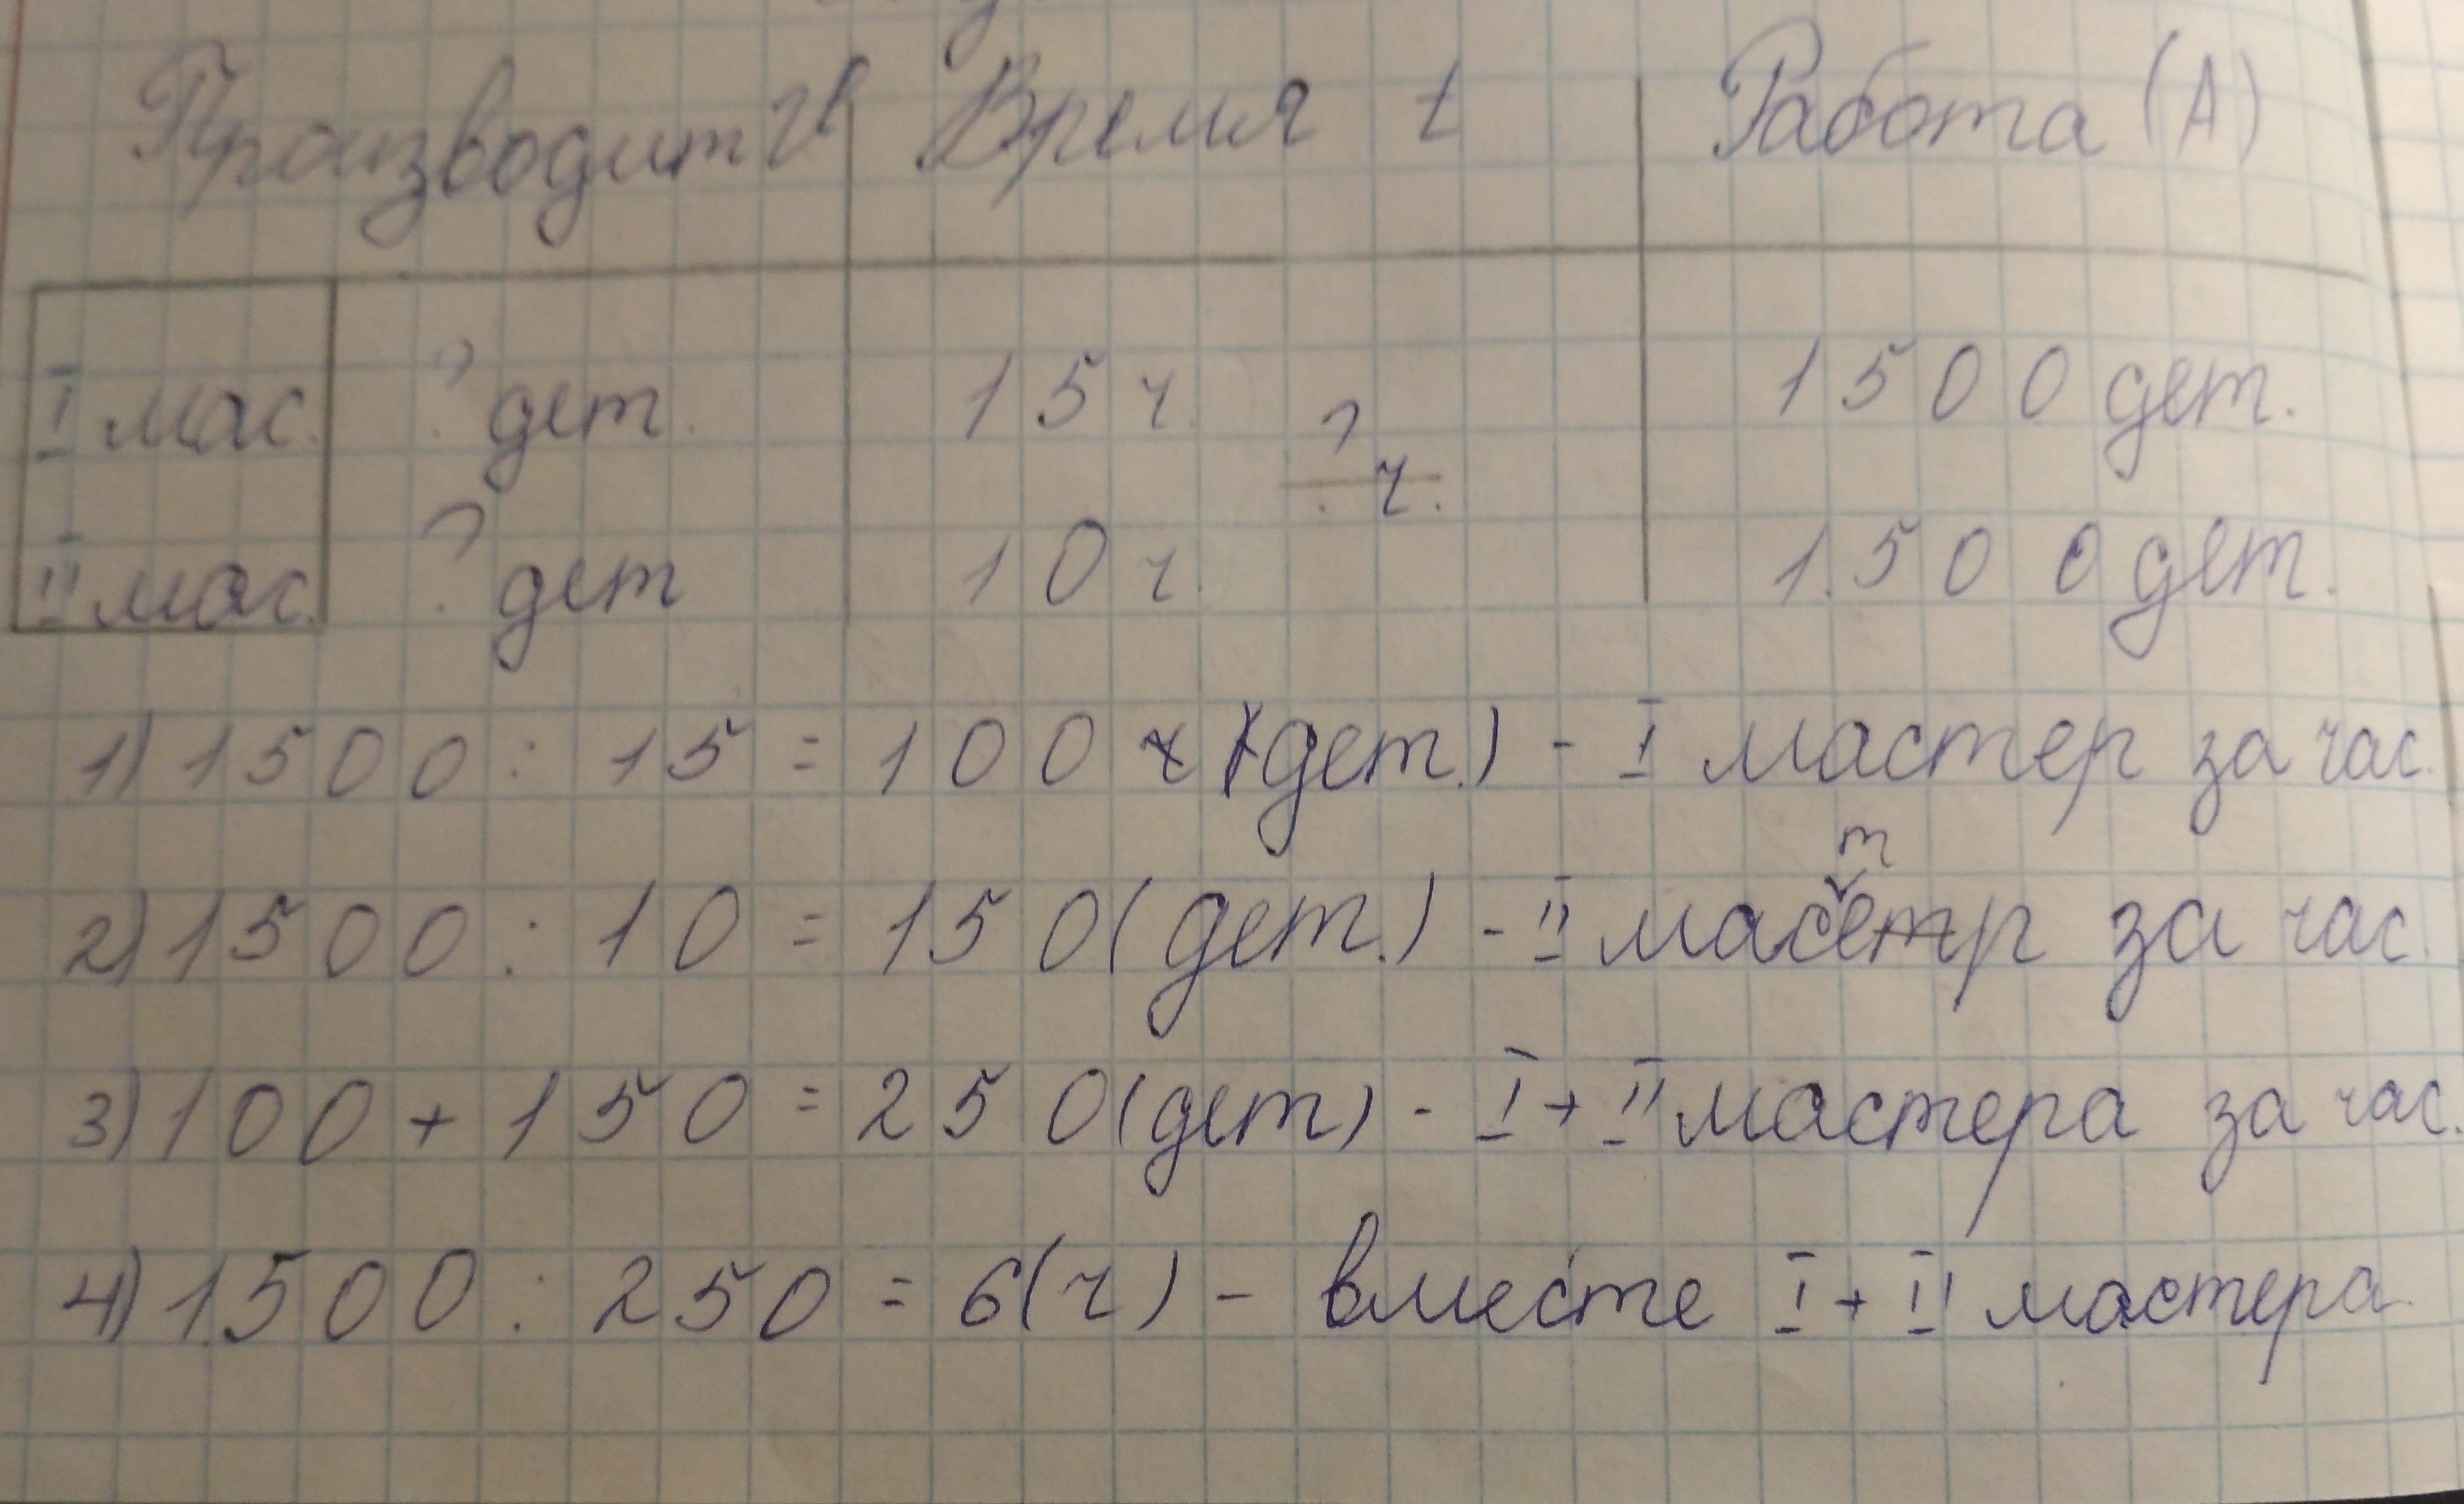 Производит v Время t Работа (А)
I мас. ? дет. 15 ч. 1500 дет.
? ч.
II мас. ? дет 10 ч. 1500 дет.
1) 1500 : 15 = 100 (дет.) - I мастер за час.
2) 1500 : 10 = 150 (дет.) - II мастер за час.
3) 100 + 150 = 250 (дет) - I + II мастера за час.
4) 1500 : 250 = 6 (ч) - вместе I + II мастера